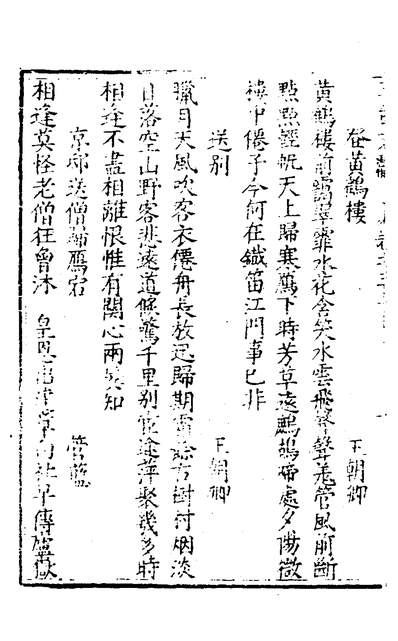 登黄鶴樓 王朝卿
黄鶴樓前靄翠霏水花含笑水雲飛聲聲羌管風前斷
點點輕帆天上歸寒鴈下時芳草遠鷓鴣啼處夕陽微
樓中僊子今何在鐵笛江門事已非
送别 王朝卿
臘月天風吹客衣僊舟長放迅歸期 村烟淡
日落空山野客悲遠道倏驚千里别宦途萍聚幾多時
相逢不盡相離恨惟有關心兩 知
京邸送僧歸鴈宕 管藍
相逢莫怪老僧狂曾沐 皇恩出 早傳